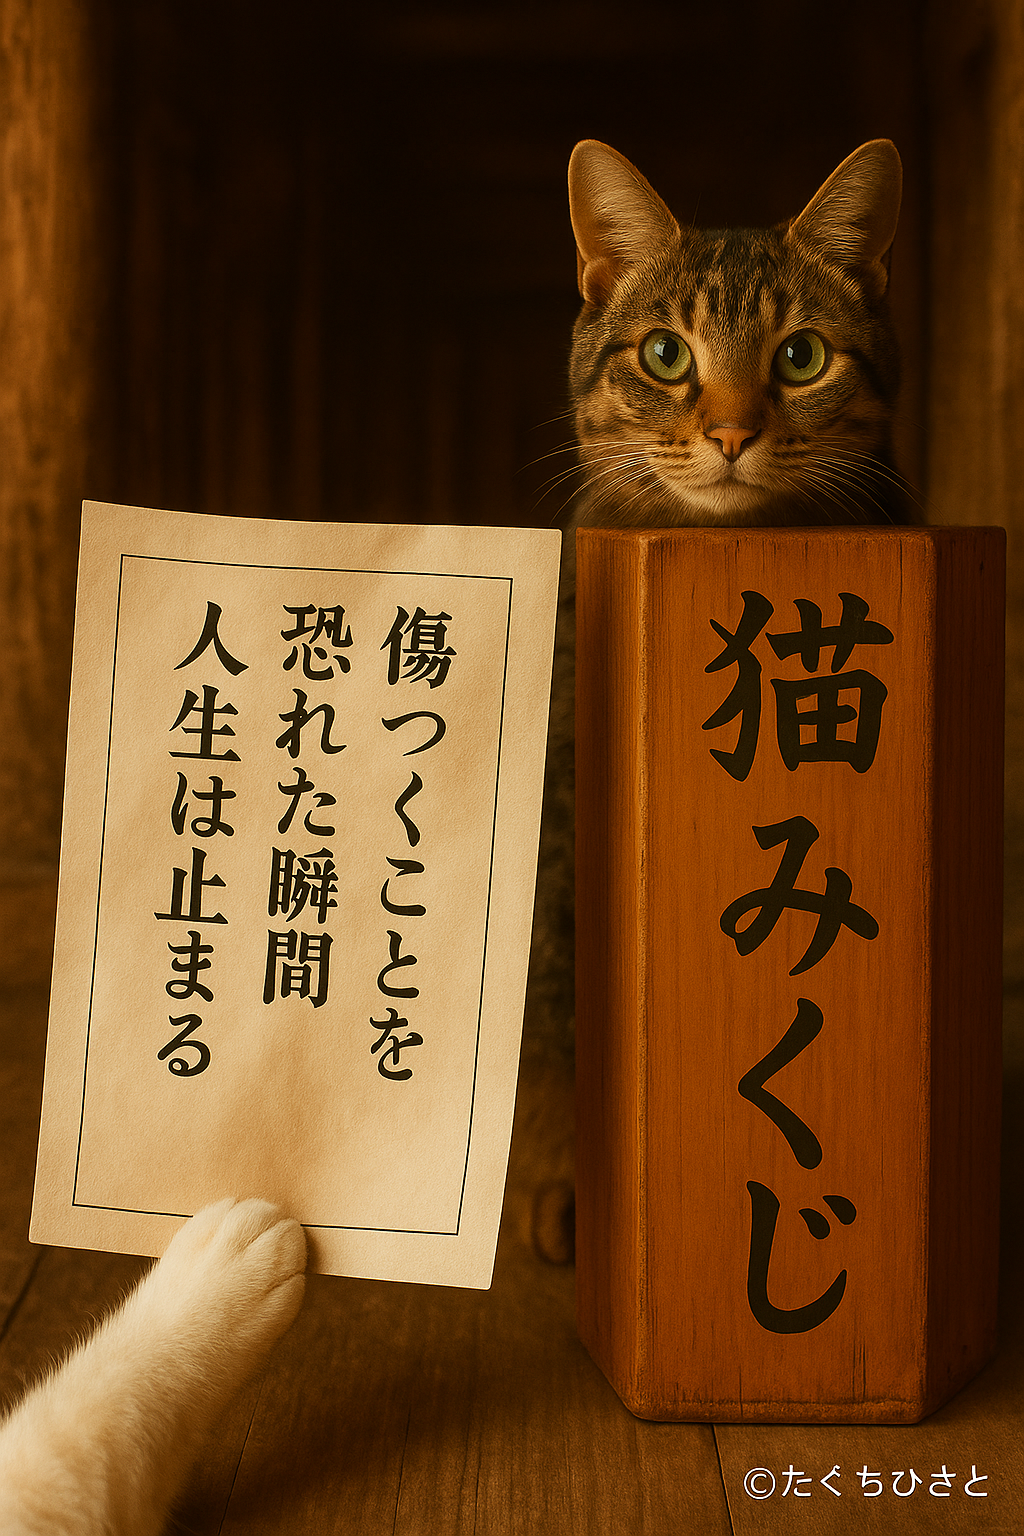 傷つくことを
恐れた瞬間
人生は止まる
猫みくじ
©たぐちひさと